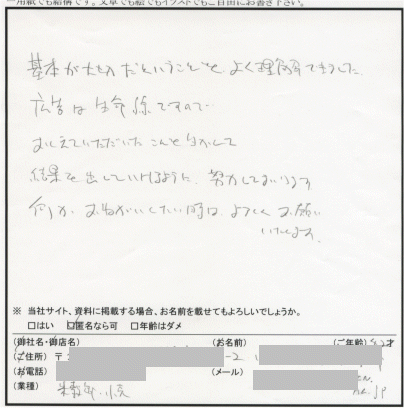 用紙でも結構です。文章でも絵でもイラストでもご自由にお書き下さい。
基本が大切だということを、よく理解できました。
広告は生命線ですので、
おしえていただいたことを生かして
結果を出していけるように、努力してまいります
何か、おねがいしたい時は、よろしくお願い
いたします。
※ 当社サイト、資料に掲載する場合、お名前を載せてもよろしいでしょうか。
□はい ☑匿名なら可 □年齢はダメ
(御社名・御店名) (お名前) (ご年齢) 才
(ご住所) 〒
(お電話) (メール)
(業種)